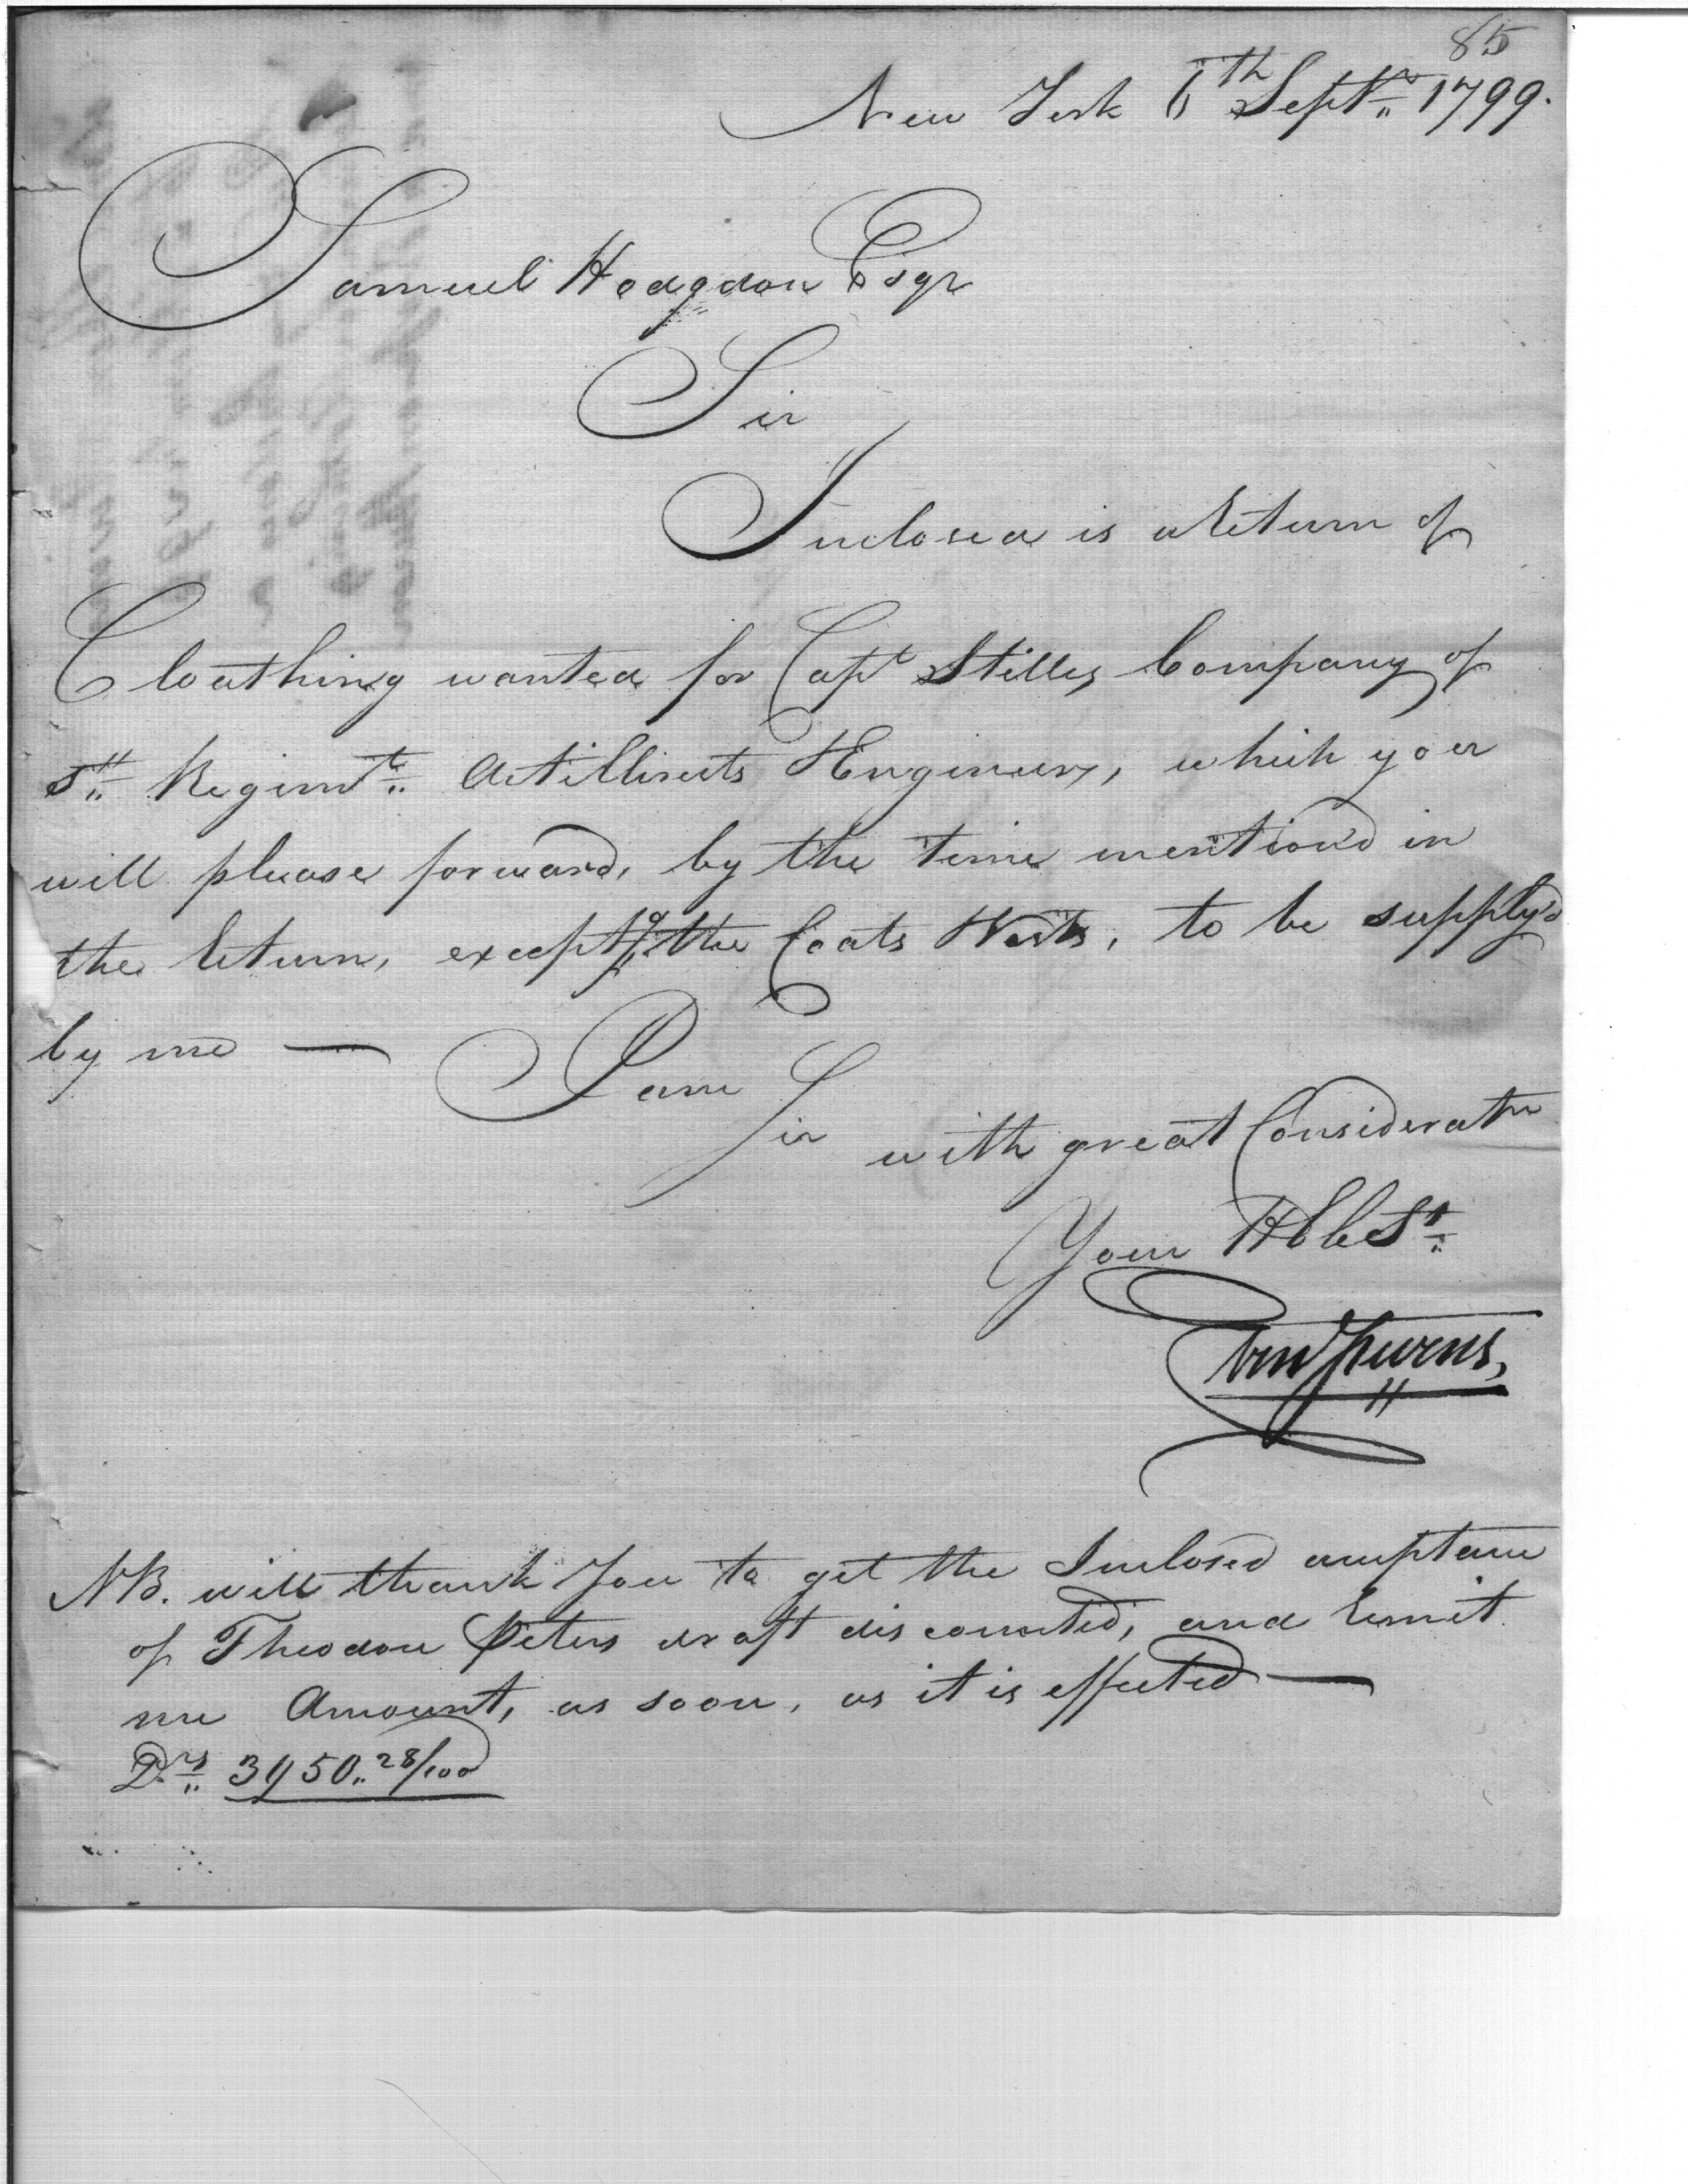 85
New York 6th Septr 1799.
Samuel Hodgdon Esqr
Sir
Inclosed is a Return of
Cloathing wanted for Capt Stilles Company of
Regimt Artillirists & Engineers, which you
will please forward, by the time mention'd in
the return, exceptg the Coats & Vests, to be supply'd
by me —
I am
Sir
with great Consideratn
Your Hble St
NB. will thank You to get the Inclosed acceptance
of Theodore Peters draft discounted, and remit
me Amount, as soon, as it is effected —
Drs 3950.. 28/100